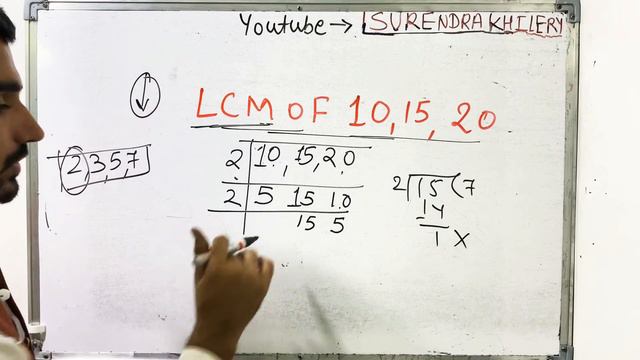 Youtube → SURENDRA KHILERY
LCM OF 10,15,20
2,3,5,7
2 10,15,20
2 5 15 10
15 5
2 15 7
14
1 X